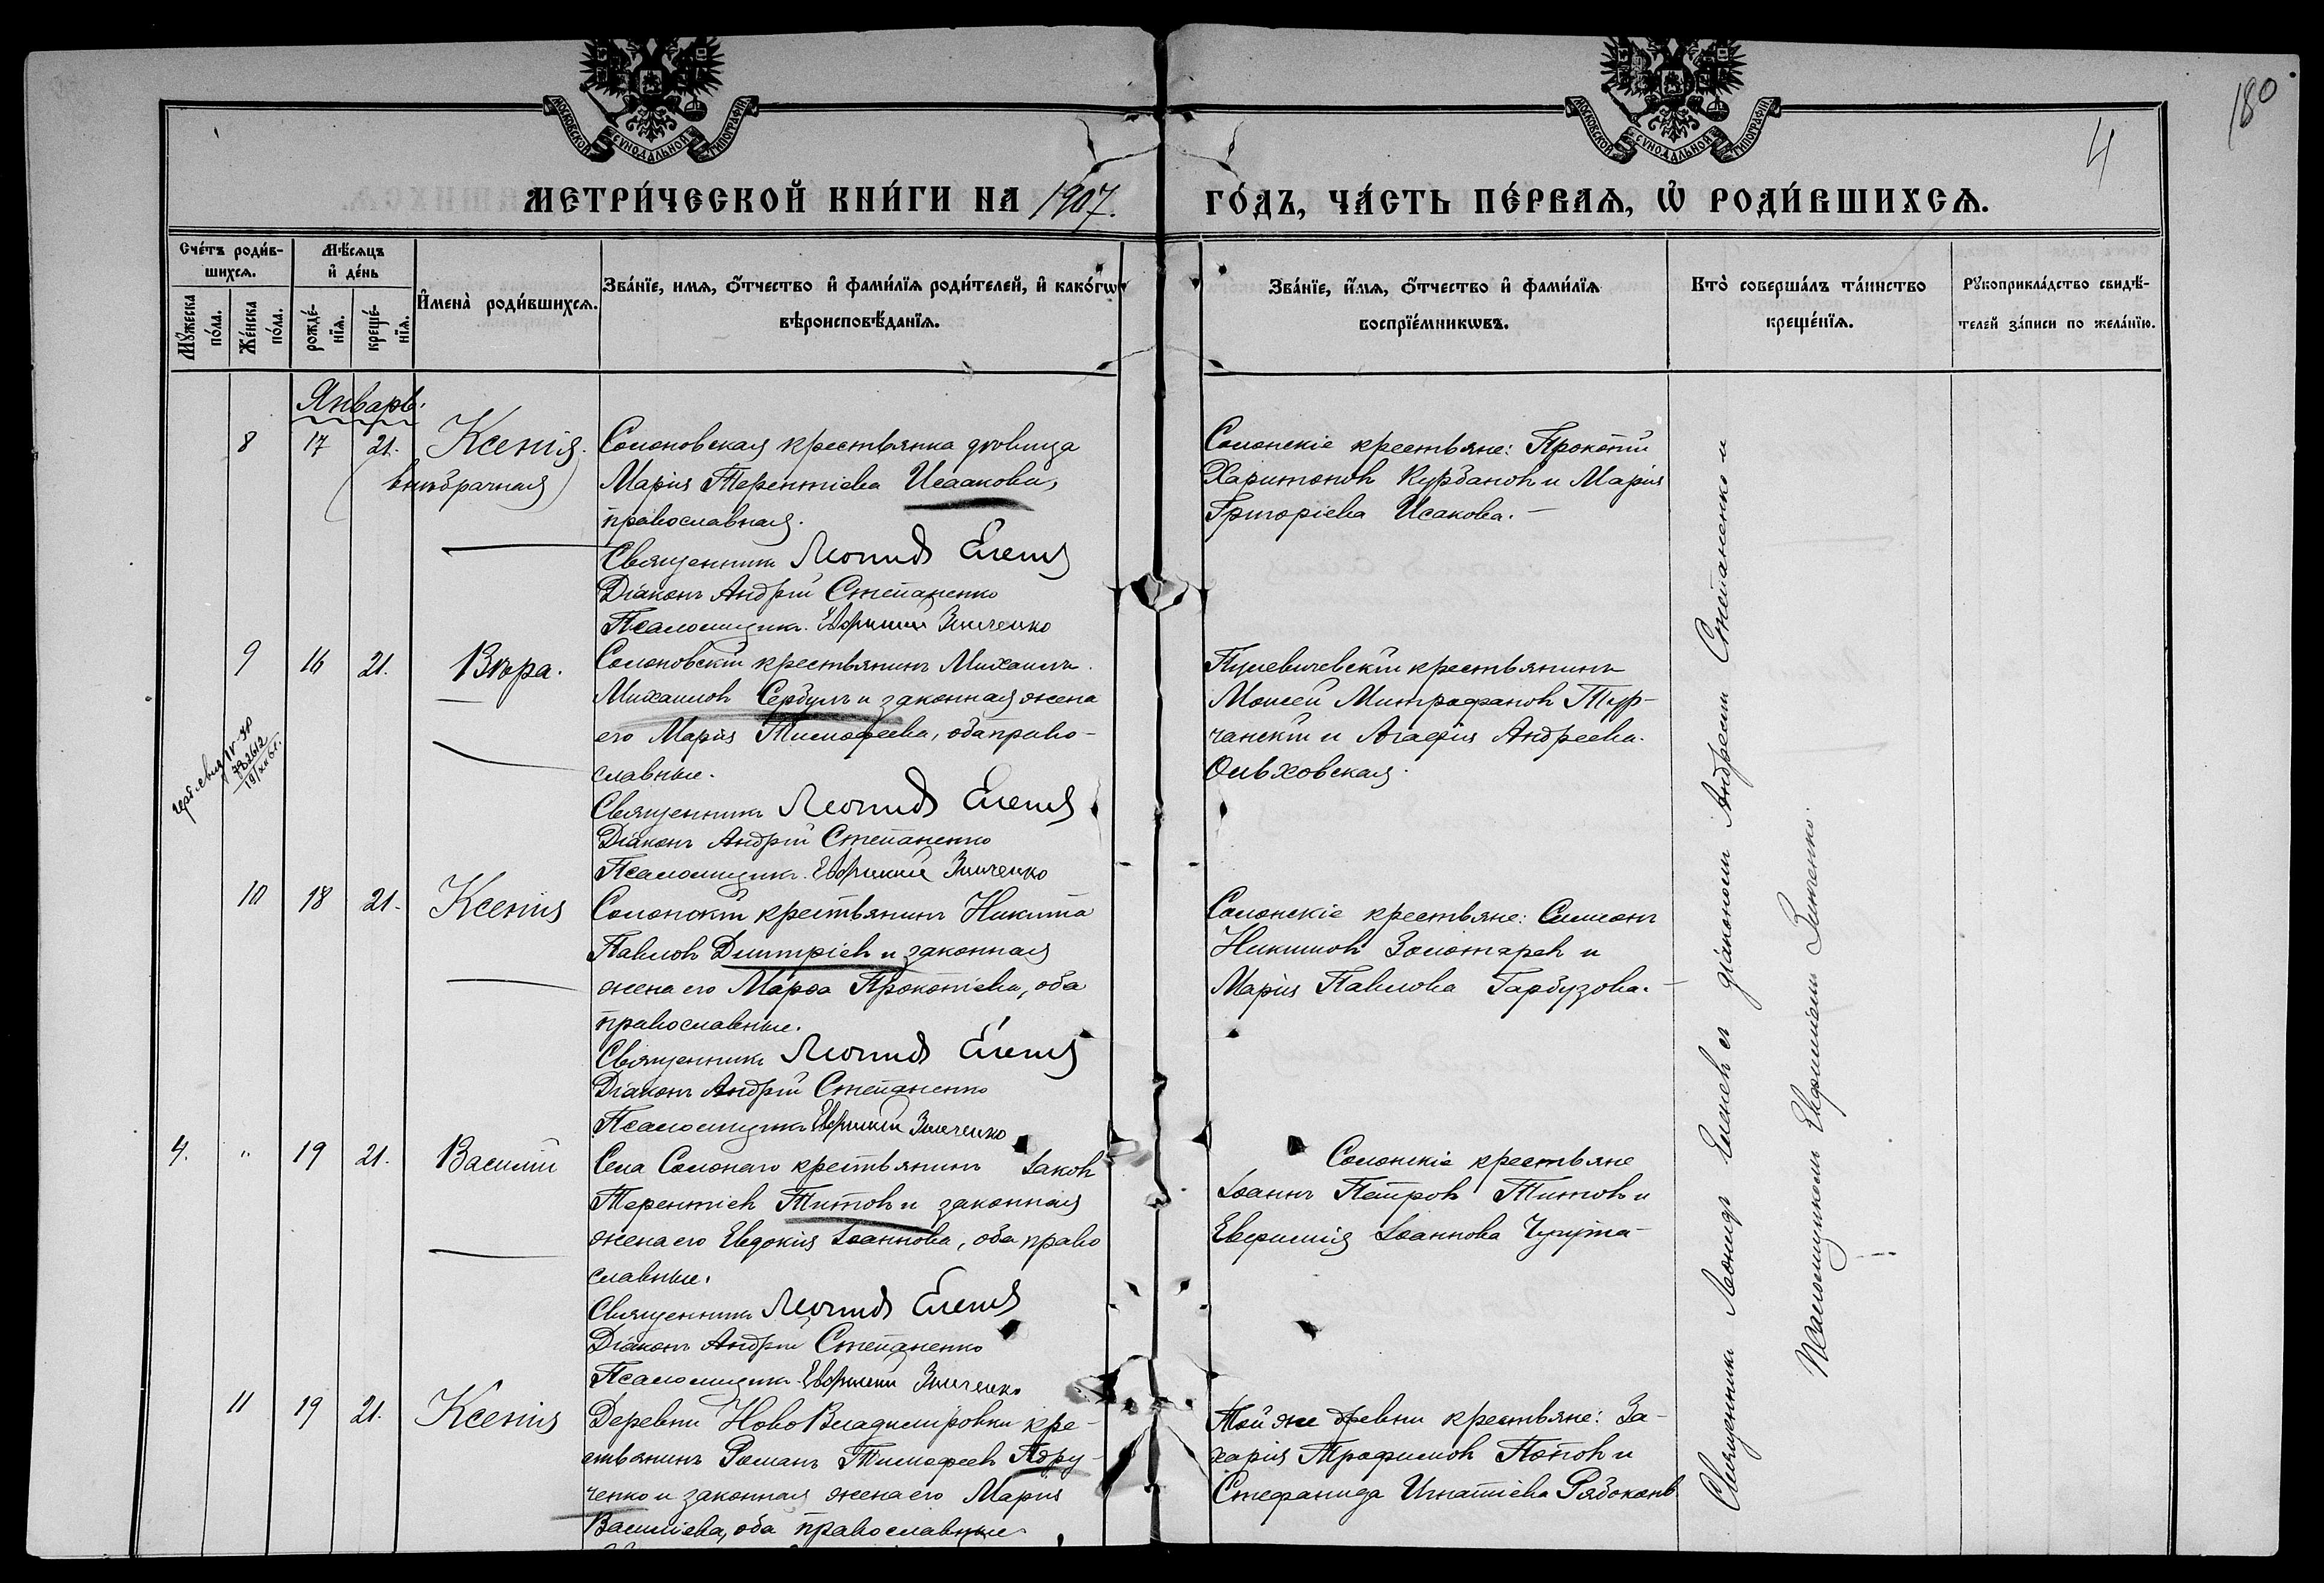 180
4
МОСКОВСКОЙ СУНОДАЛЬНОЙ ТИПОГРАФІИ
МОСКОВСКОЙ СУНОДАЛЬНОЙ ТИПОГРАФІИ
МЕТРИ́ЧЕСКОЙ КНИ́ГИ НА 1907.
ГО́ДЪ, ЧА́СТЬ ПЕ́РВАѦ, Ѽ РОДИ́ВШИХСѦ.
Сче́тъ роди́в-
шихсѧ.
Мѣ́сѧцъ
и҆ де́нь
Мꙋ́жеска
по́ла.
Же́нска
по́ла.
рожде́-
нїѧ.
креще́-
нїѧ.
И҆мена̀ роди́вшихсѧ.
Зва́нїе, имѧ, ѻ҆́тчество и҆ фами́лїѧ роди́телей, и҆ како́гѡ
вѣроисповѣ́данїѧ.
Зва́нїе, и҆́мѧ, ѻ҆́тчество и҆ фами́лїѧ
воспрїе́мникѡвъ.
Кто̀ соверша́лъ та́инство
креще́нїѧ.
Рꙋкоприкла́дство свидѣ́-
телей за́писи по жела́нїю.
Январь.
8 17 21. Ксенія.
(внѣбрачная)
Солоновская крестьянка дѣвица
Марія Терентіева Исаакова,
православная.
Священникъ Леонидъ Еленевъ
Діаконъ Андрей Степаненко
Псаломщикъ Евфимій Зинченко
Солонскіе крестьяне: Прокопій
Харитоновъ Курбановъ и Марія
Григоріева Исакова.
9 16 21. Вѣра.
Солоновскій крестьянинъ Михаилъ
Михаиловъ Сербулъ и законная жена
его Марія Тимофеева, оба право-
славные.
Священникъ Леонидъ Еленевъ
Діаконъ Андрей Степаненко
Псаломщикъ Евфимій Зинченко
Моисей Митрофановъ Тур-
чанскій и Агафія Андреева
Ольховская.
10 18 21. Ксенія
Солонскій крестьянинъ Никита
Павловъ Димитріевъ и законная
жена его Марѳа Прокопіева, оба
православные.
Священникъ Леонидъ Еленевъ
Діаконъ Андрей Степаненко
Псаломщикъ Евфимій Зинченко
Солонскіе крестьяне: Симеонъ
Никитовъ Золотаревъ и
Марія Павлова Гарбузова.
4. " 19 21. Василій
Села Солонаго крестьянинъ Іаковъ
Терентіевъ Титовъ и законная
жена его Евдокія Іоаннова, оба право
славные.
Священникъ Леонидъ Еленевъ
Діаконъ Андрей Степаненко
Псаломщикъ Евфимій Зинченко
Солонскіе крестьяне
Іоаннъ Петровъ Титовъ и
Евфимія Іоаннова
11 19 21. Ксенія
Деревни НовоВладиміровки кре-
стьянинъ Романъ Тимофеевъ Ядру-
ченко и законная жена его Марія
Василіева, оба православные
Той же деревни крестьяне: За-
харія Трофимовъ Поповъ и
Стефанида Игнатіева Рябоконь
Священникъ Леонидъ Еленевъ съ діакономъ Андреемъ Степаненко и
Псаломщикомъ Евфиміемъ Зинченко.